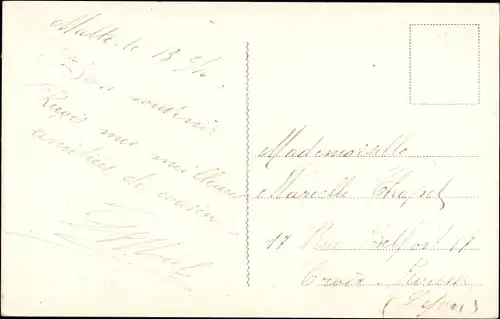 Malte. le 13
Bon souvenir
Reçois mes meilleures
amitiés de cousin
Mademoiselle
Marcelle Chapel
17 Rue Belfort 17
Croix. Rousse
(Lyon)